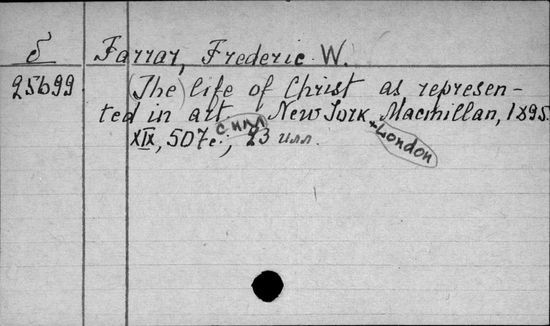 б Farrar, Frederic W.
25699 (The) life of Christ as represen-
ted in art с илл New York + London Macmillan, 1895.
XIX, 507 c., 23 илл.